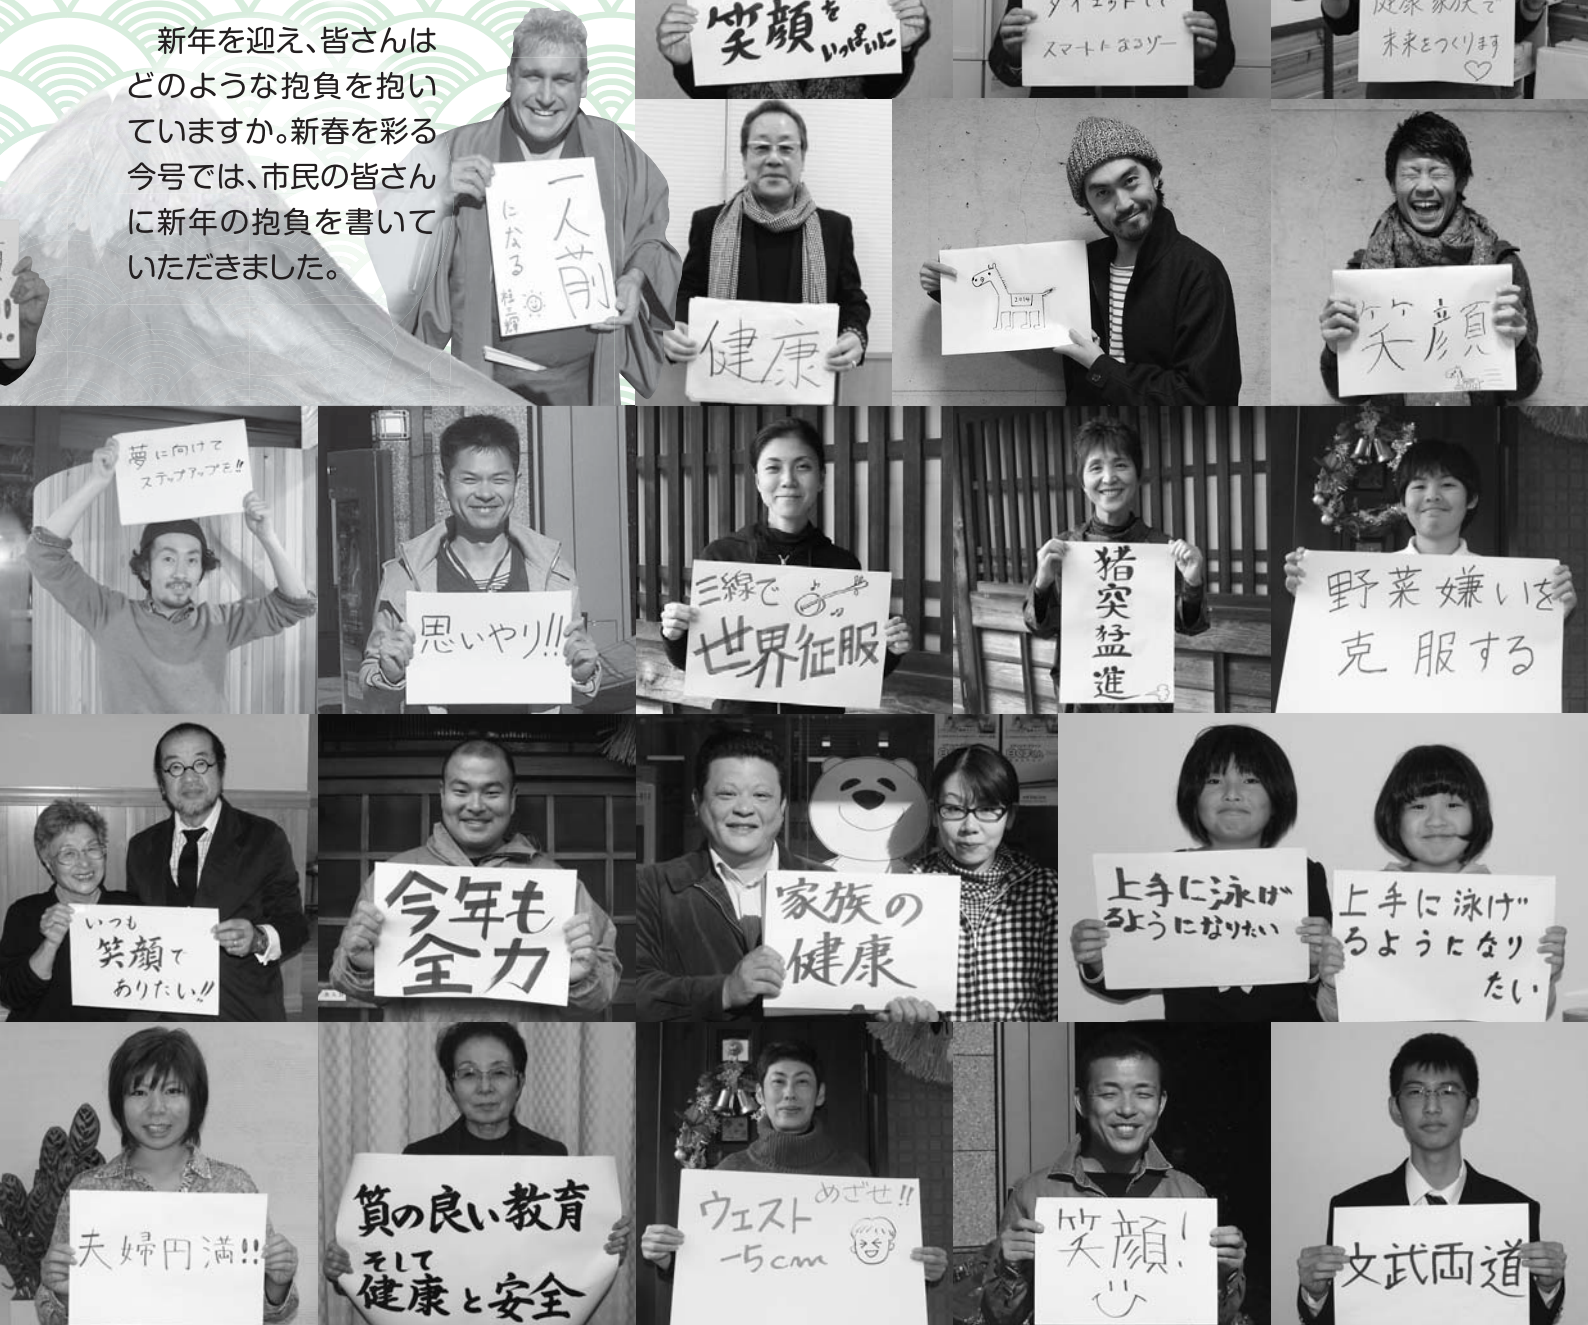 新年を迎え、皆さんは
どのような抱負を抱い
ていますか。新春を彩る
今号では、市民の皆さん
に新年の抱負を書いて
いただきました。
笑顔を
いっぱいに
スマートになるゾー
健康家族で
未来をつくります
一人前
になる
健康
2014
笑顔
夢に向けて
ステップアップを!!
思いやり!!
三線で
世界征服
猪突猛進
野菜嫌いを
克服する
いつも
笑顔で
ありたい!!
今年も
全力
家族の
健康
上手に泳げ
るようになりたい
上手に泳げ
るようになり
たい
夫婦円満!!
質の良い教育
そして
健康と安全
めざせ!!
ウェスト
-5cm
笑顔!
文武両道